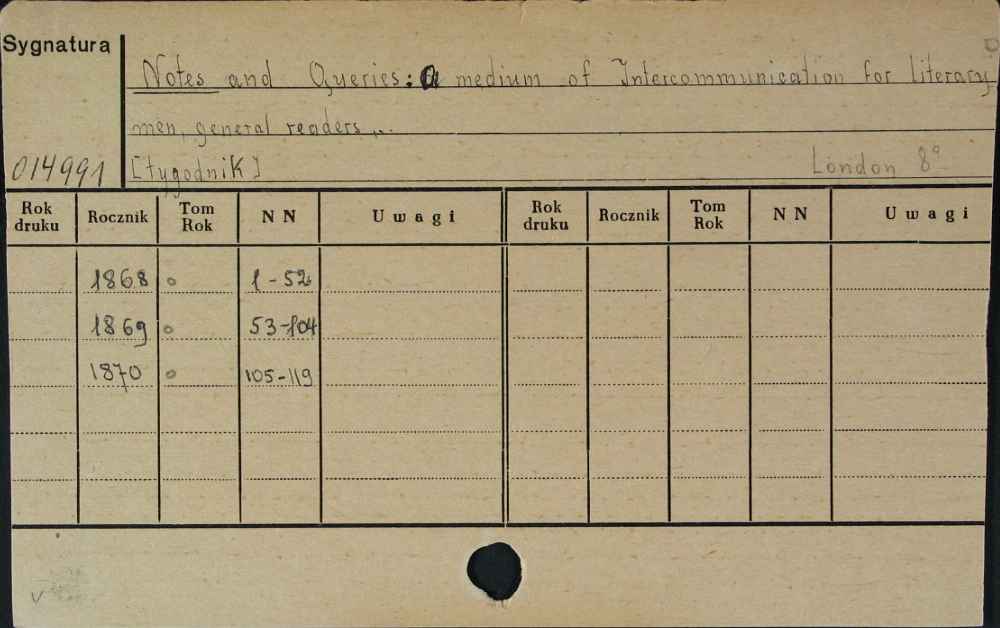 Sygnatura
Notes and Queries: a medium of Intercommunication for literary
men, general readers...
014991 [tygodnik] London 8°
Rok druku Rocznik Tom Rok NN Uwagi Rok druku Rocznik Tom Rok NN Uwagi
1868 o 1-52
1869 o 53-104
1870 o 105-119
v